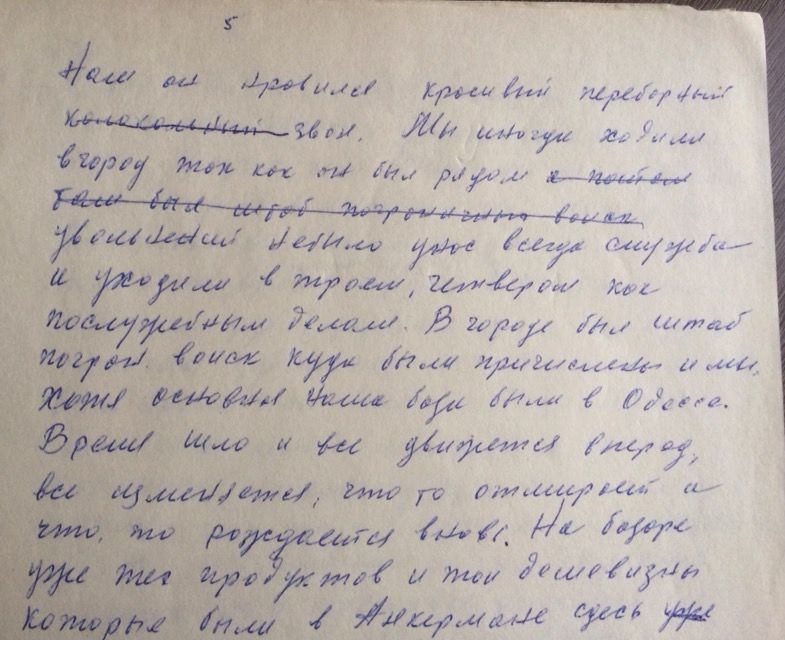 5
Нам он нравился красивый переборный
колокольный звон. Мы иногда ходили
в город так как он был рядом и потом
там был штаб пограничных войск
увольнений небыло унас всегда служба
и уходили в троем, четвером как
послужебным делам. В городе был штаб
погран. войск куда были причислены и мы,
хотя основная наша база были в Одесса.
Время шло и все движется вперод,
все изменяется, что то отмирает и
что, то рождается вновь. На базаре
уже тех продуктов и той дешевизны
которые были в Анкермане сдесь уже